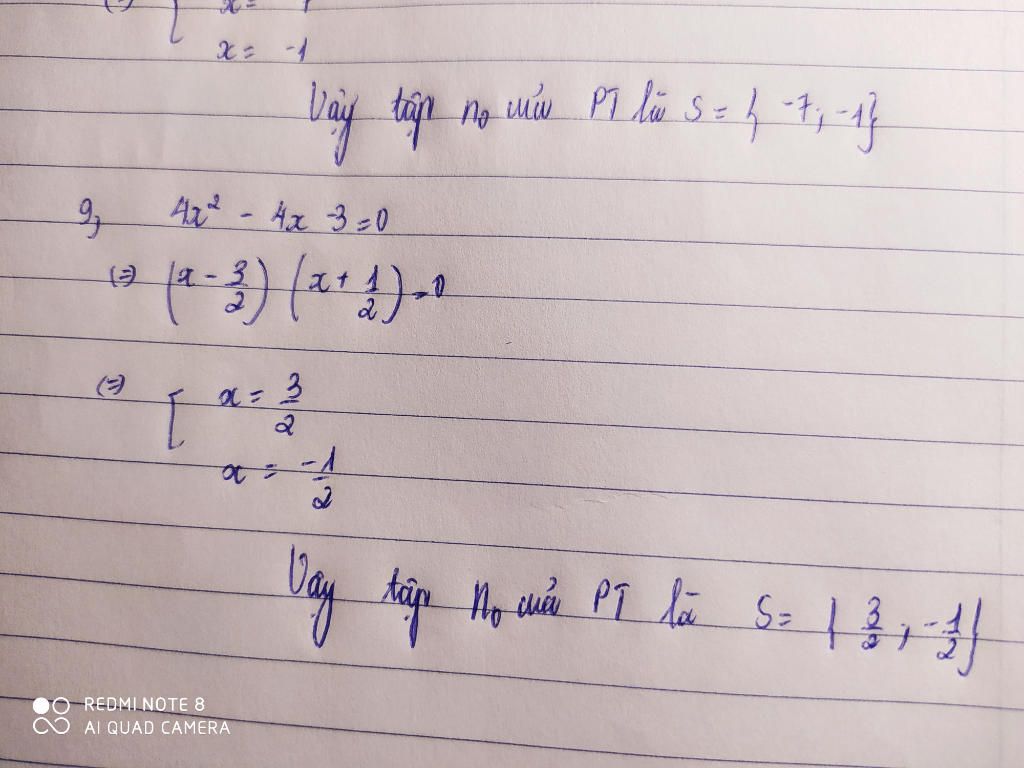 (=) [ x = -7
x = -1
Vậy tập no của PT là S = { -7; -1}
9, 4x² - 4x -3 = 0
(=) (x - 3/2) (x + 1/2) = 0
(=) [ x = 3/2
x = -1/2
Vậy tập no của PT là S = { 3/2 ; -1/2 }
REDMI NOTE 8
AI QUAD CAMERA